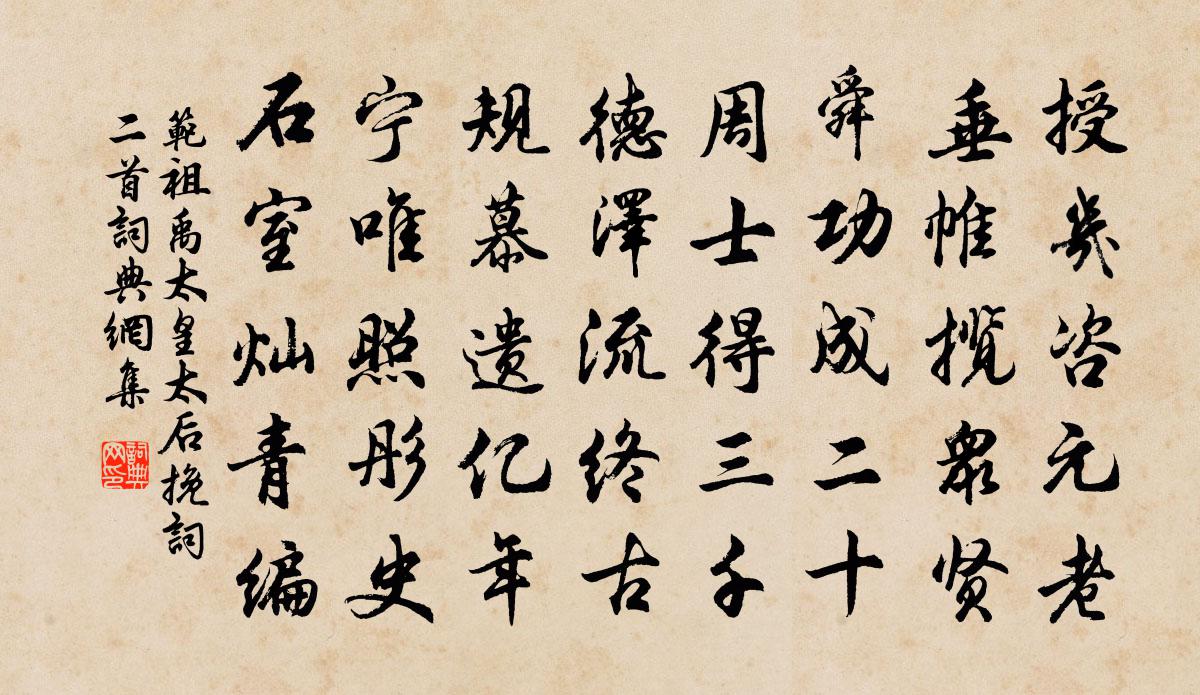 授幾咨元老
垂帷揽眾贤
舜功成二十
周士得三千
德澤流终古
规慕遗亿年
宁唯照彤史
石室灿青编
範祖禹太皇太后挽詞
二首詞典網集
詞典
网印